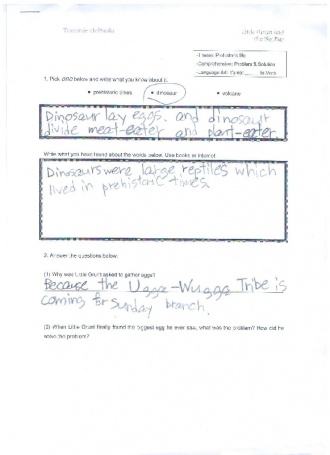 Tomie dePaola
Little Grunt and
the Big Egg
-Comprehension: Problem & Solution
1. Pick one below and write what you know about it.
• prehistoric times • dinosaur • volcano
Dinosaur lay eggs. and dinosaur
divide meat-eater and plant-eater
Write what you have found about the words below. Use books or internet.
Dinosaurs were large reptiles which
lived in prehistoric times.
2. Answer the questions below.
(1) Why was Little Grunt asked to gather eggs?
Because the Ugga-Wugga Tribe is
coming for Sunday branch.
(2) When Little Grunt finally found the biggest egg he ever saw, what was the problem? How did he
solve the problem?